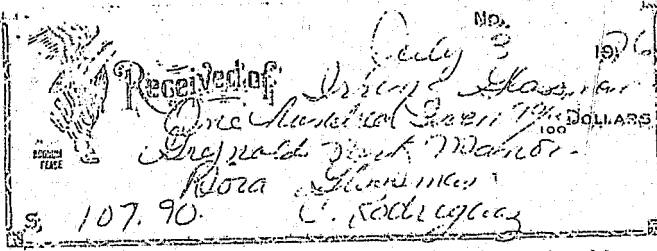 No.
July 3 1976
Received of Irving Glassman
One Hundred Seven 90/100 DOLLARS
Park Manor
Dora Glassman
$ 107.90. C. Rodriguez